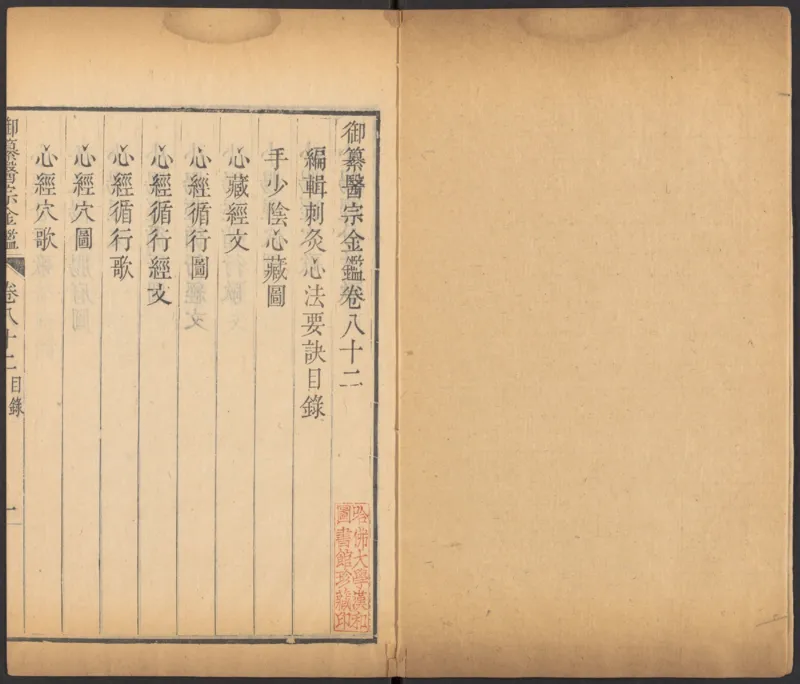 御纂醫宗金鑑卷八十二
編輯刺灸心法要訣目錄
手少陰心藏圖
心藏經文
心經循行圖
心經循行經文
心經循行歌
心經穴圖
心經穴歌
御纂醫宗金鑑 卷八十二 目錄 一
哈佛大學漢和
圖書館珍藏印